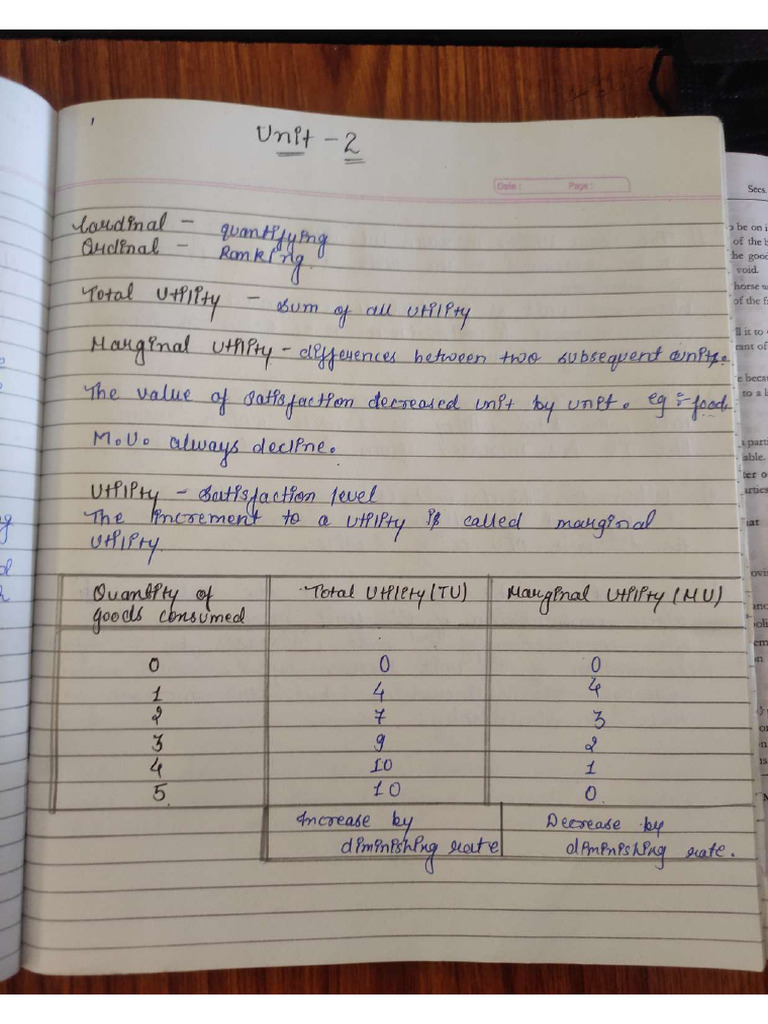 Unit - 2
Date : Page :
Cardinal - quantifying
Ordinal - Ranking.
Total Utility - Sum of all utility
Marginal Utility - differences between two subsequent units.
The value of satisfaction decreased unit by unit. eg :- food
M.U. always decline.
Utility - Satisfaction level
The increment to a utility is called marginal
utility.
Quantity of goods consumed Total Utility (TU) Marginal Utility (MU)
0 0 0
1 4 4
2 7 3
3 9 2
4 10 1
5 10 0
Increase by Decrease by
diminishing rate diminishing rate.
Secs.
be on i
of the b
he good
void.
horse w
of the f
it to
rant of
becau
to a l
parti
able.
ter o
arties